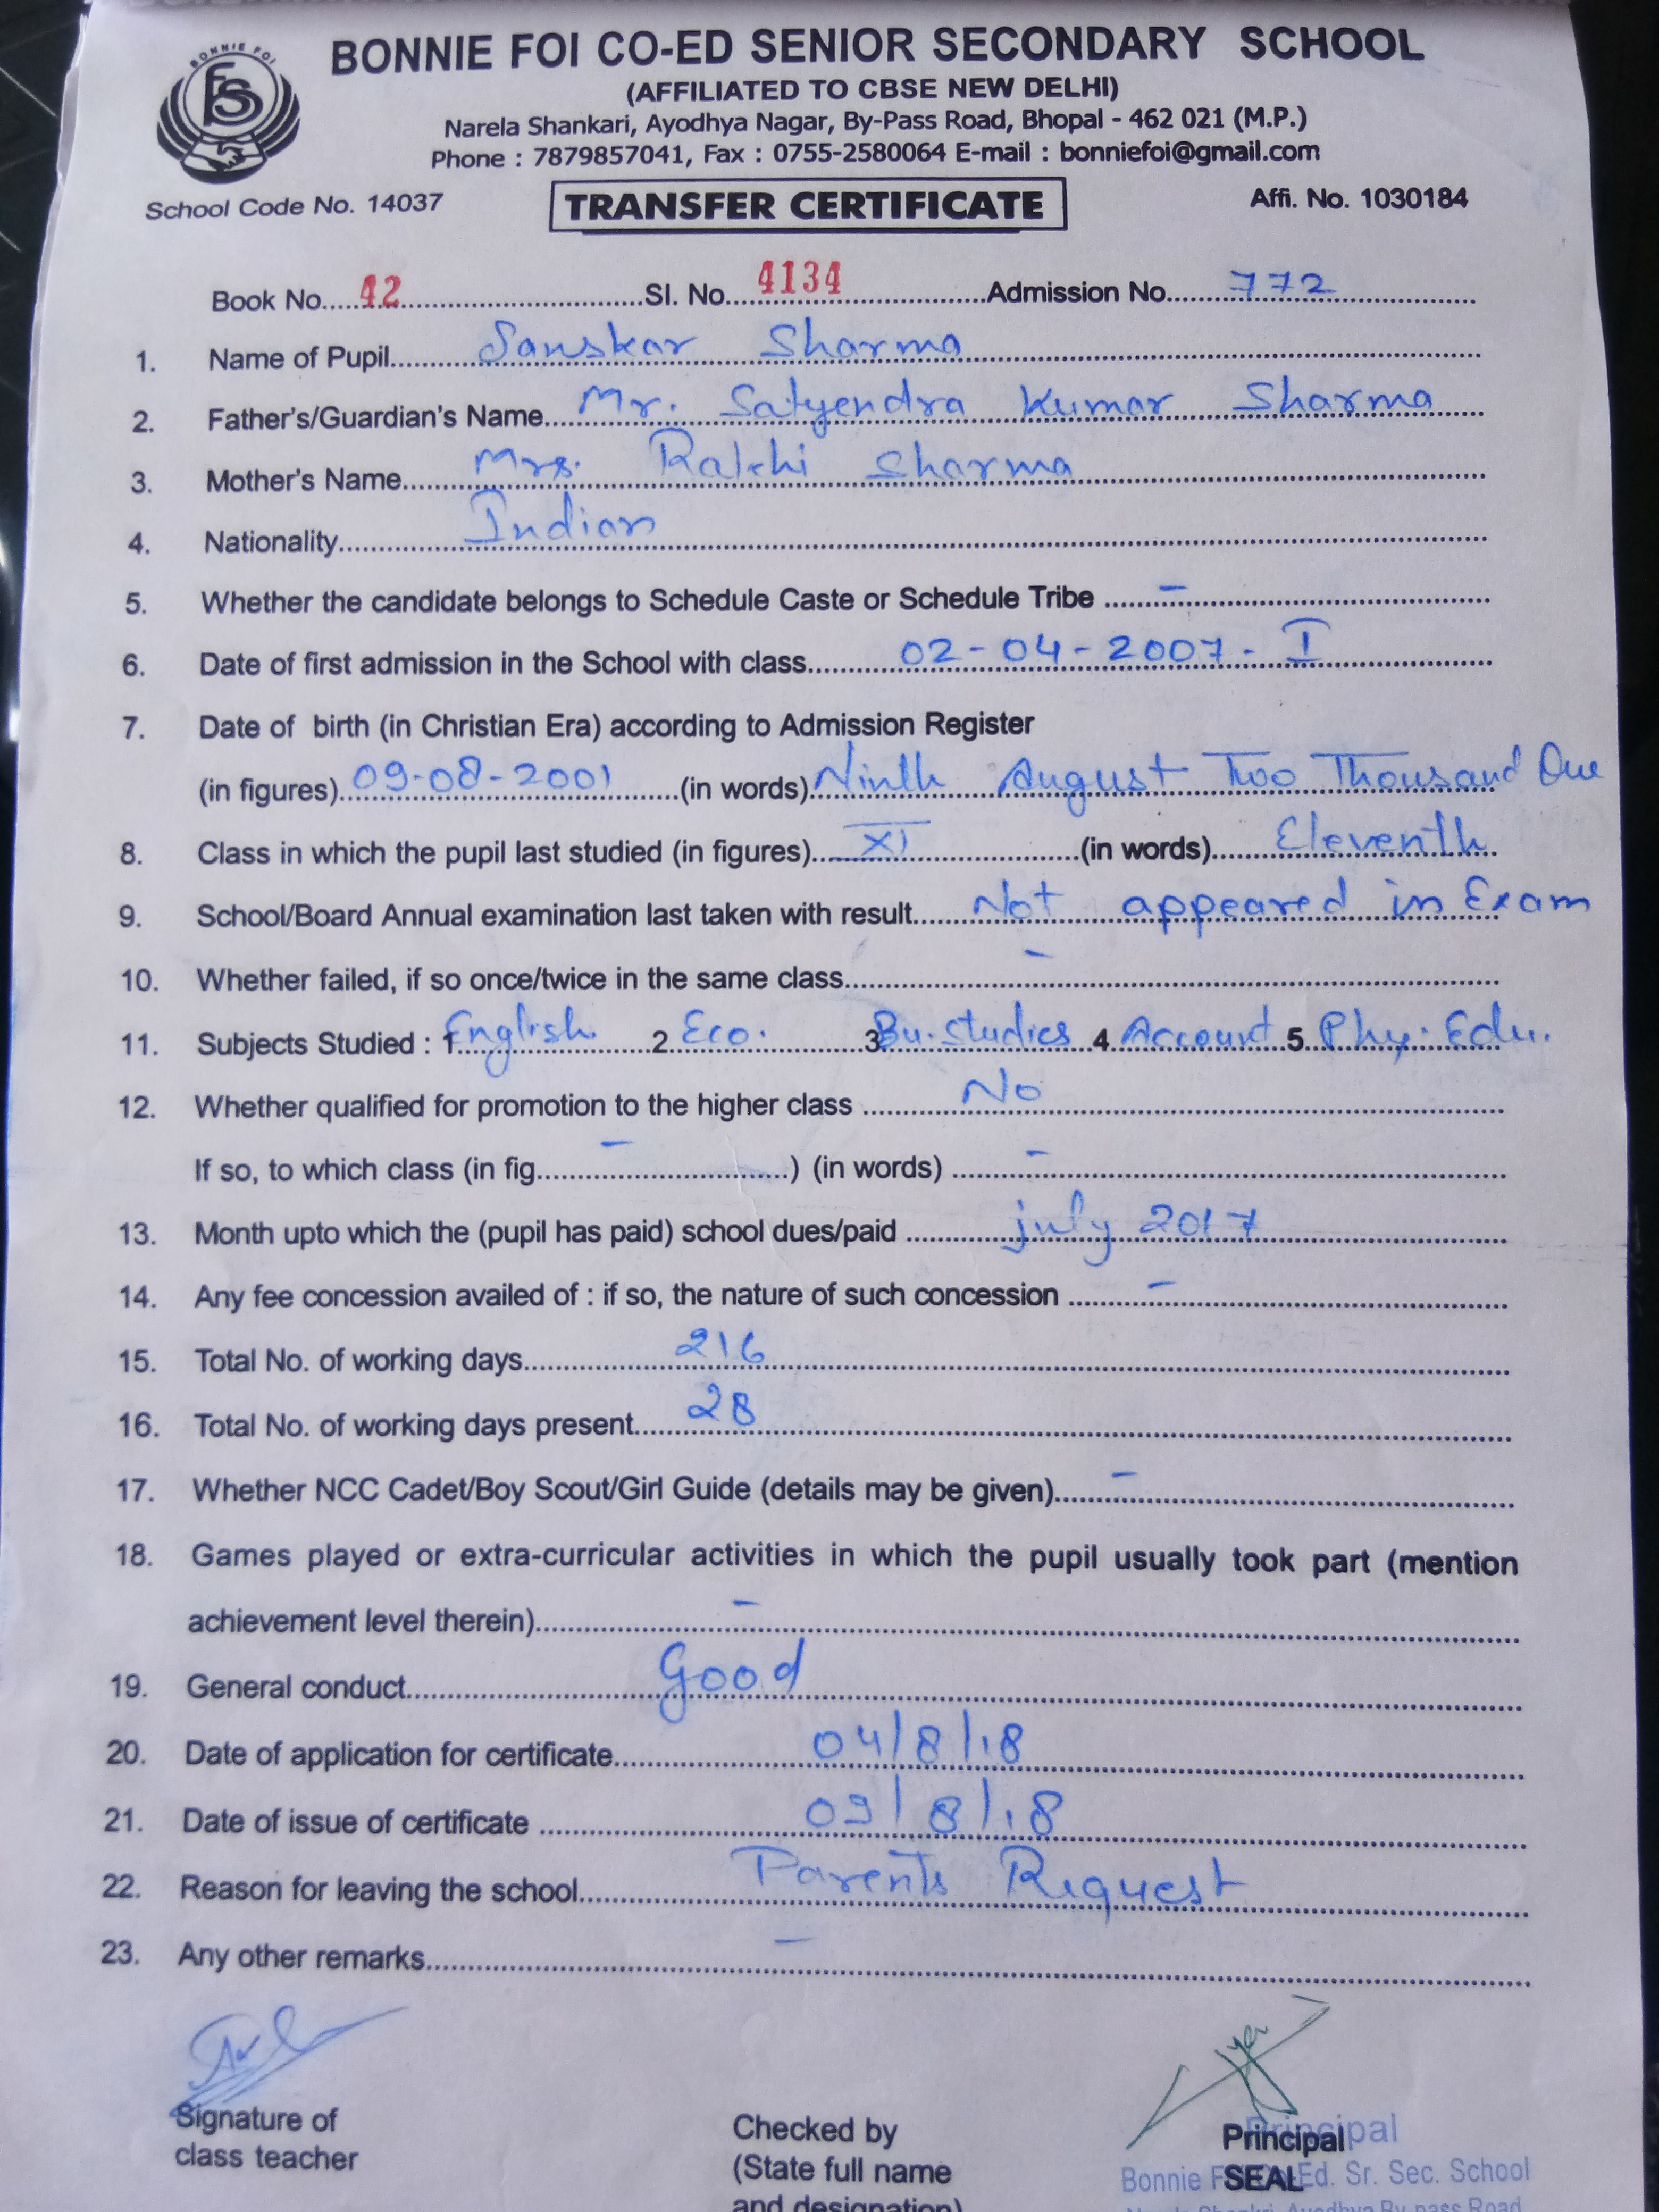 BONNIE FOI
FS
BONNIE FOI CO-ED SENIOR SECONDARY SCHOOL
(AFFILIATED TO CBSE NEW DELHI)
Narela Shankari, Ayodhya Nagar, By-Pass Road, Bhopal - 462 021 (M.P.)
Phone : 7879857041, Fax : 0755-2580064 E-mail : bonniefoi@gmail.com
School Code No. 14037 TRANSFER CERTIFICATE Affi. No. 1030184
Book No. 42 Sl. No. 4134 Admission No. 772
1. Name of Pupil Sanskar Sharma
2. Father's/Guardian's Name Mr. Satyendra Kumar Sharma
3. Mother's Name Mrs. Rakhi Sharma
4. Nationality Indian
5. Whether the candidate belongs to Schedule Caste or Schedule Tribe -
6. Date of first admission in the School with class 02-04-2007 - I
7. Date of birth (in Christian Era) according to Admission Register
(in figures) 09-08-2001 (in words) Ninth August Two Thousand One
8. Class in which the pupil last studied (in figures) XI (in words) Eleventh
9. School/Board Annual examination last taken with result Not appeared in Exam
10. Whether failed, if so once/twice in the same class -
11. Subjects Studied : 1. English 2. Eco. 3. Bu. Studies 4. Account 5. Phy. Edu.
12. Whether qualified for promotion to the higher class No
If so, to which class (in fig. - ) (in words) -
13. Month upto which the (pupil has paid) school dues/paid july 2017
14. Any fee concession availed of : if so, the nature of such concession -
15. Total No. of working days 216
16. Total No. of working days present 28
17. Whether NCC Cadet/Boy Scout/Girl Guide (details may be given) -
18. Games played or extra-curricular activities in which the pupil usually took part (mention
achievement level therein) -
19. General conduct Good
20. Date of application for certificate 04/8/18
21. Date of issue of certificate 09/8/18
22. Reason for leaving the school Parents Request
23. Any other remarks -
Signature of
class teacher
Checked by
(State full name
and designation)
Principal
SEAL
Principal
Bonnie Foi Co-Ed. Sr. Sec. School